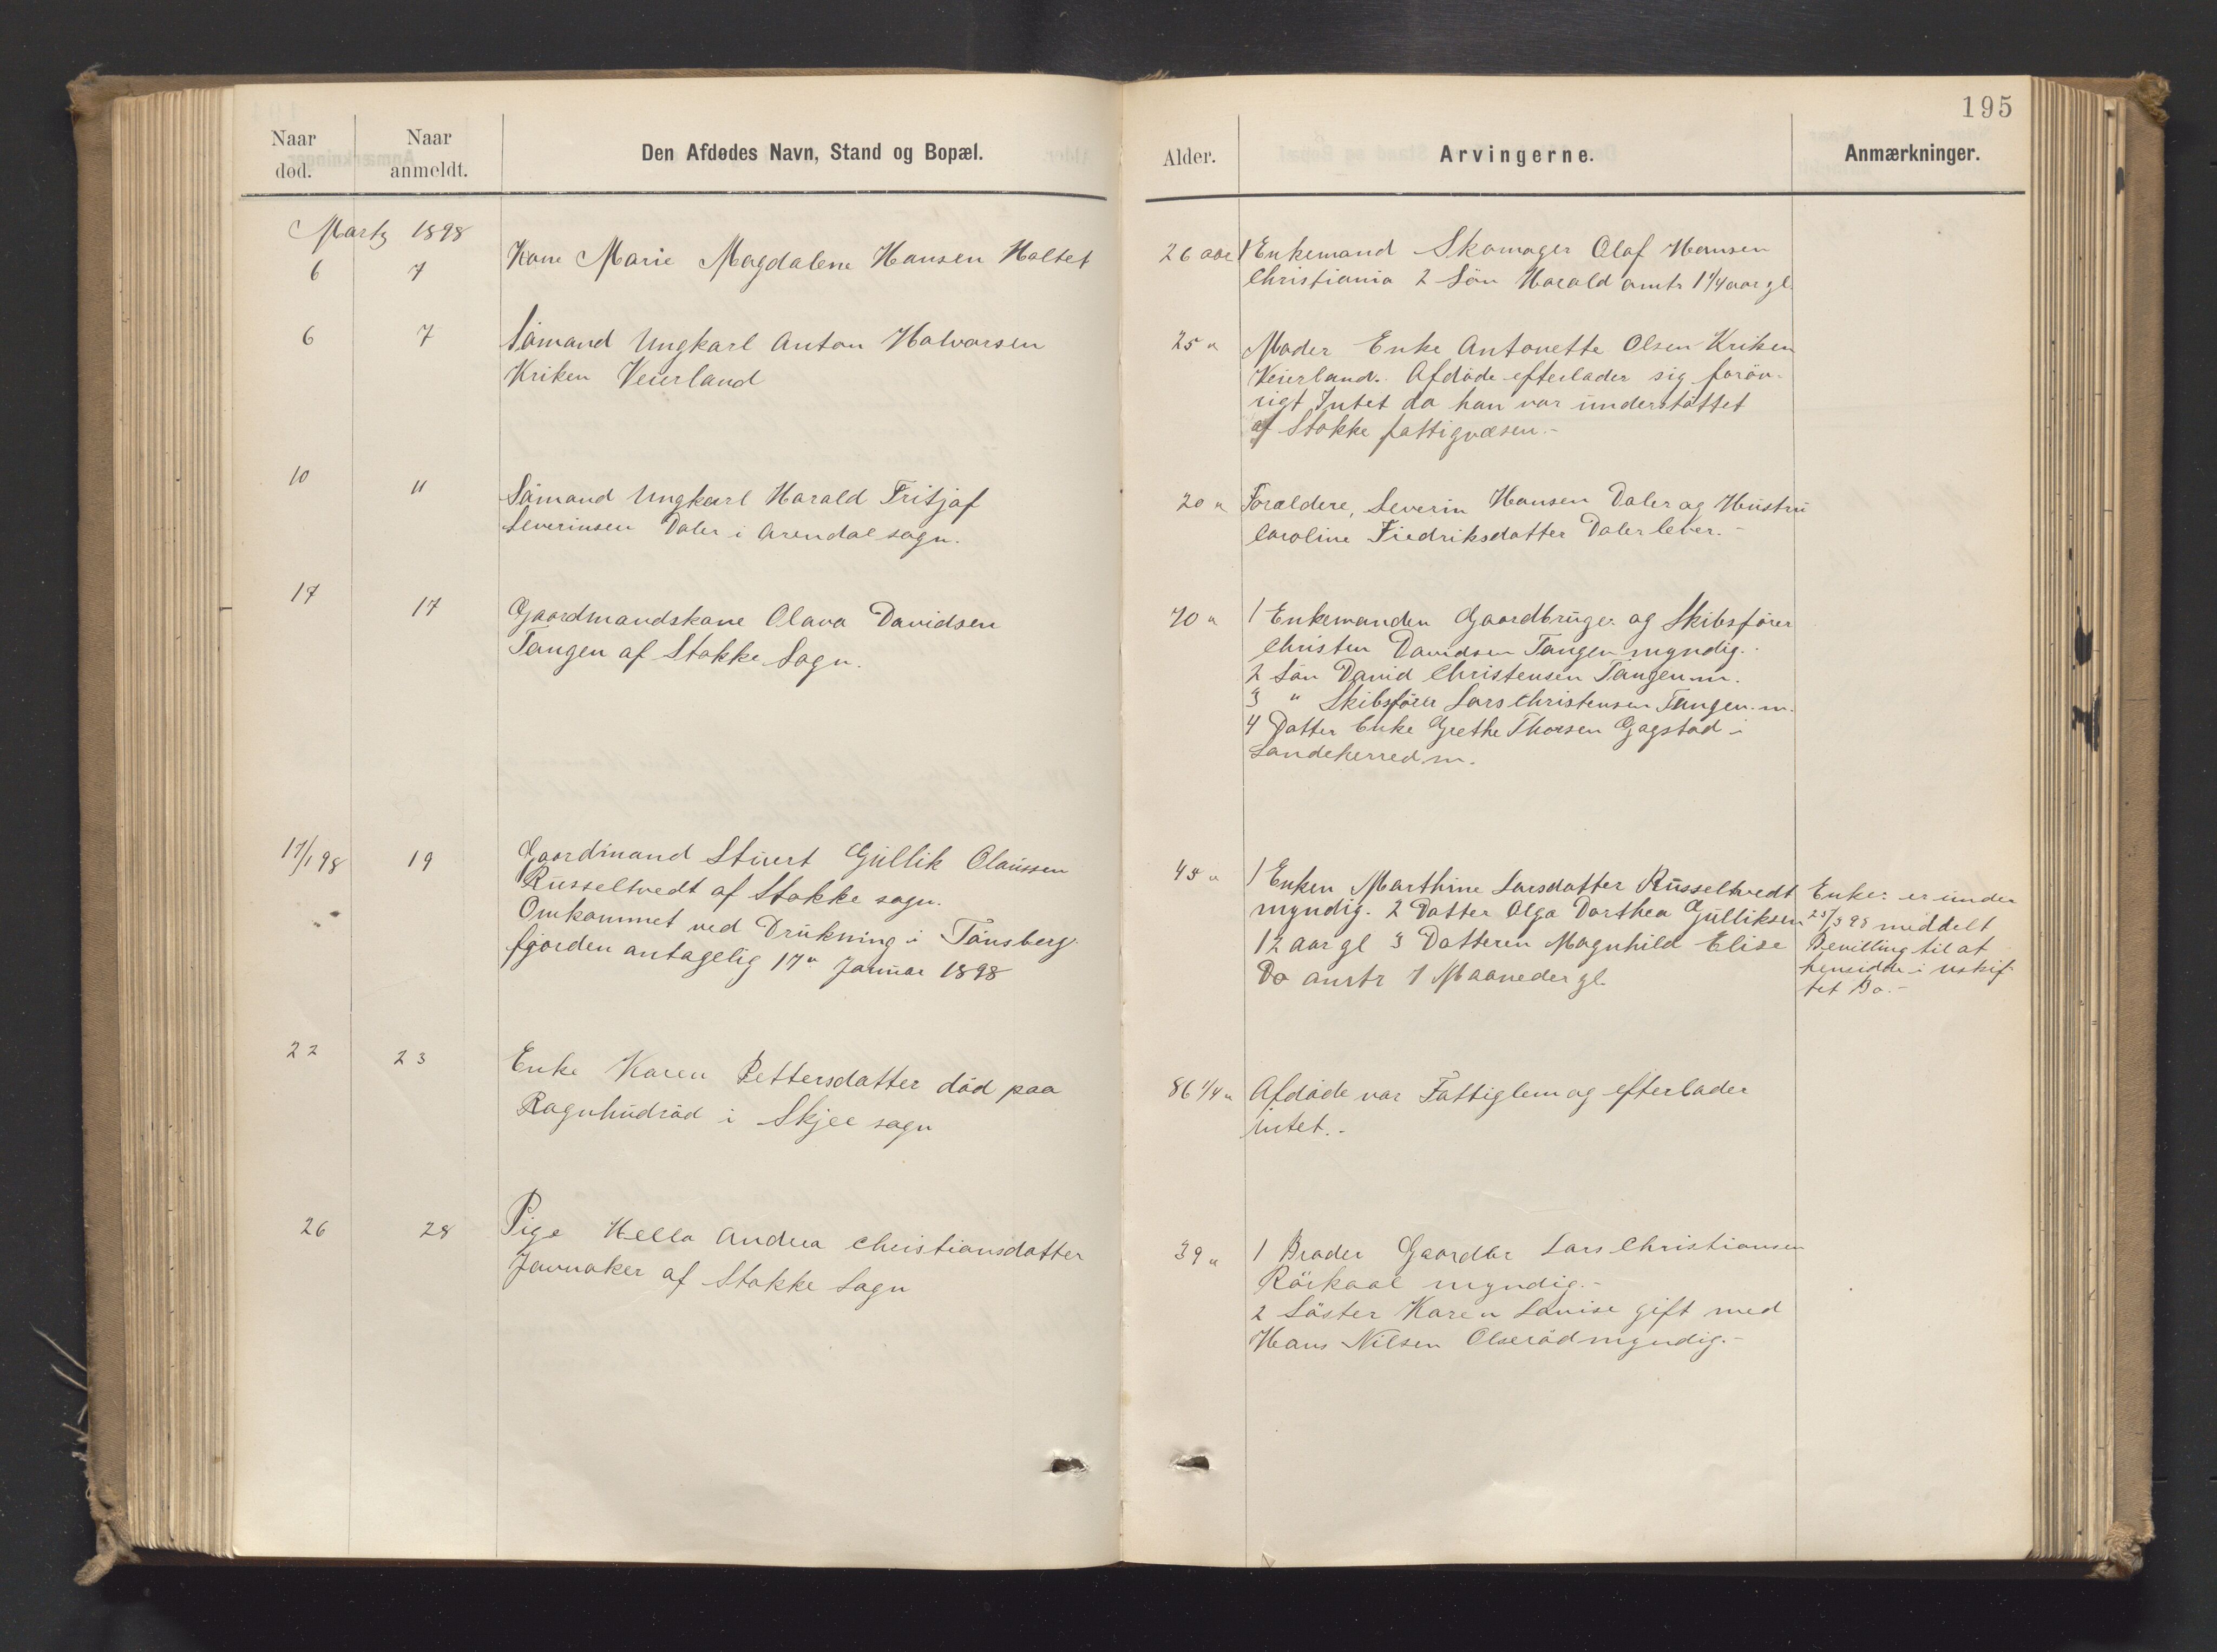 195
Naar død.
Naar anmeldt.
Den Afdødes Navn, Stand og Bopæl.
Alder.
Arvingerne.
Anmærkninger.
Martz 1898
6 7 Kone Marie Magdalene Hansen Holtet
26 aar 1 Enkemand Skomager Olaf Hansen
Christiania 2 Sön Harald omtr 1 1/4 aar gl.
6 7 Sömand Ungkarl Anton Halvorsen
Kriken Veierland
25 " Moder Enke Antonette Olsen Kriken
Veierland. Afdöde efterlader sig foröv-
rigt Intet da han var understöttet
af Stokke fattigvæsen.-
10 11 Sömand Ungkarl Harald Fritjof
Severinsen Daler i Arendal sogn.
20 " Forældere, Severin Hansen Daler og Hustru
Caroline Fredriksdatter Daler lever.-
17 17 Gaardmandskone Olava Davidsen
Tangen af Stokke Sogn.
70 " 1 Enkemanden Gaardbruger og Skibsförer
Christen Davidsen Tangen myndig.
2 Sön David Christensen Tangen m.
3 " Skibsförer Lars Christensen Tangen m.
4 Datter Enke Grethe Thorsen Gogstad i
Sandeherred m.
17/1 98 19 Gaardmand Stuert Gullik Olaussen
Russeltvedt af Stokke sogn.
Omkommet ved Drukning i Tönsberg
fjorden antagelig 17" Januar 1898
45 " 1 Enken Marthine Larsdatter Russeltvedt
myndig. 2 Datter Olga Dorthea Gulliksen
12 aar gl 3 Datteren Magnhild Elise
Do omtr 7 Maaneder gl.
Enken er under
25/3 98 meddelt
Bevilling til at
hensidde i uskif
tet Bo.-
22 23 Enke Karen Pettersdatter död paa
Ragnhudröd i Skjee sogn
86 1/4 " Afdöde var Fattiglem og efterlader
intet.-
26 28 Pige Hella Andrea Christiansdatter
Javnaker af Stokke Sogn
39 " 1 Broder Gaardbr Lars Christiansen
Rörkaal myndig.-
2 Söster Karen Lovise gift med
Hans Nilsen Olseröd myndig.-